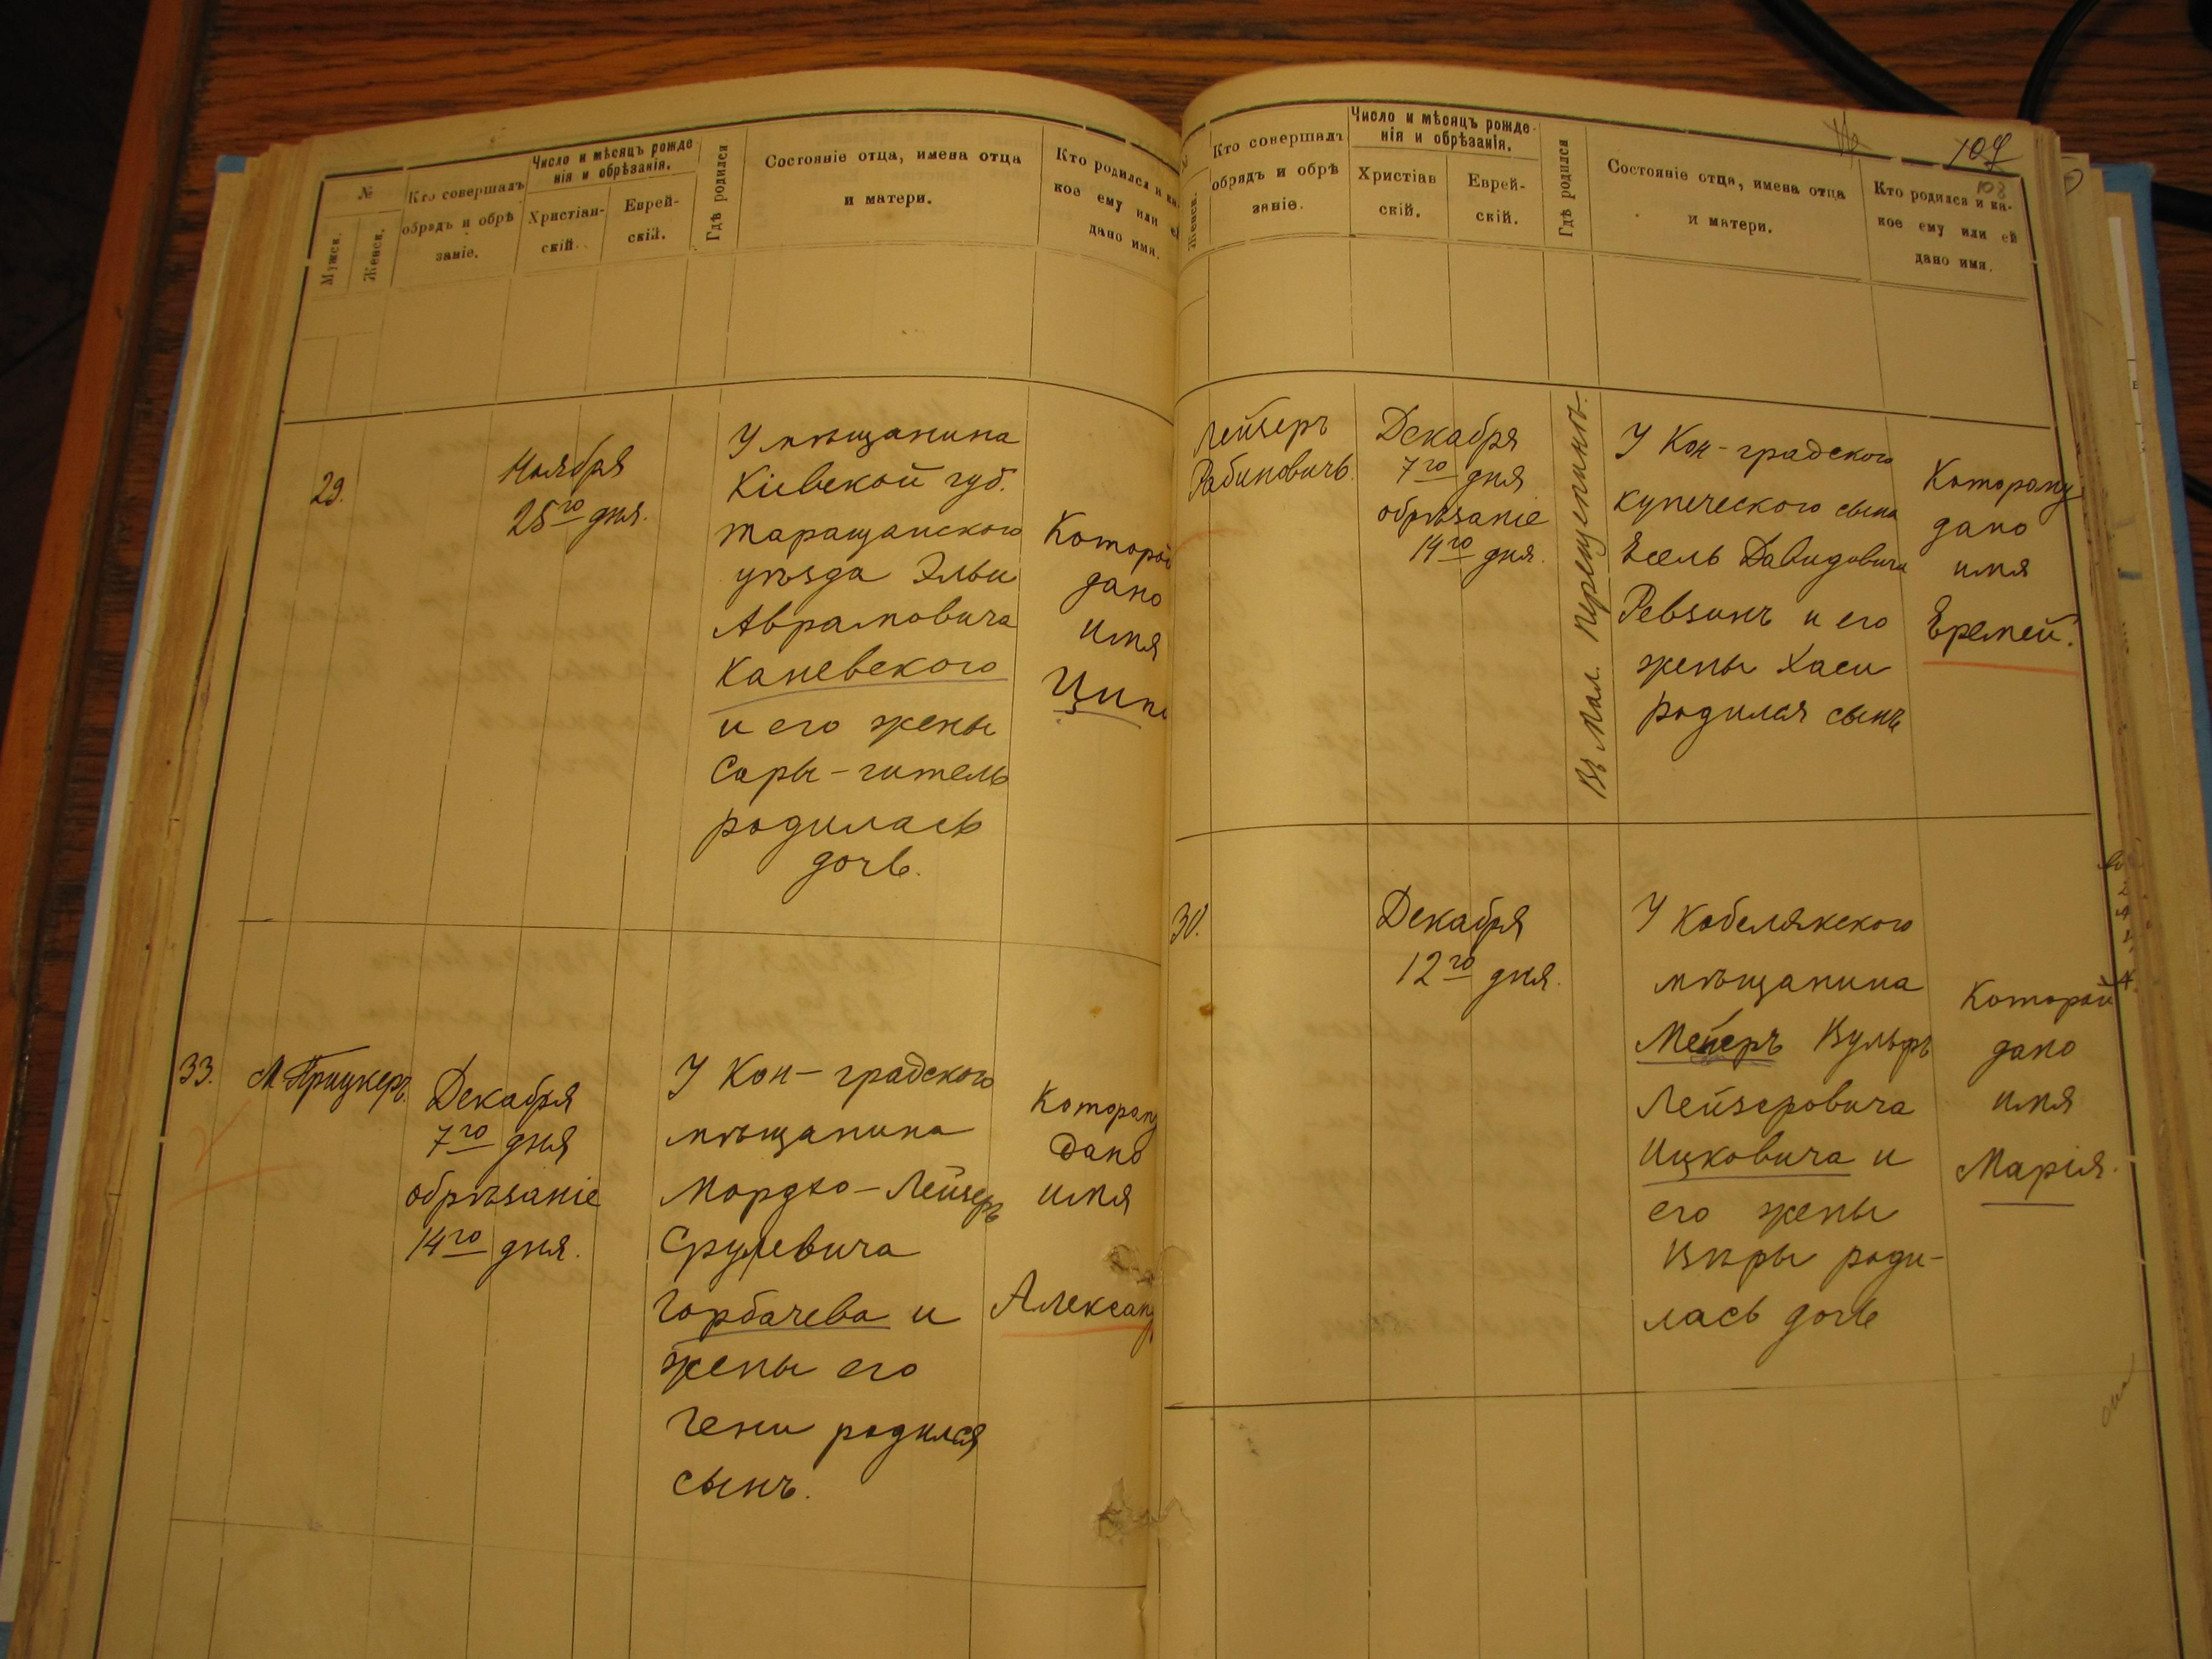 №
Мужск.
Женск.
Кто совершалъ
обрядъ и обрѣ
заніе.
Число и мѣсяцъ рожде
нія и обрѣзанія.
Христіан-
скій.
Еврей-
скій.
Гдѣ родился
Состояніе отца, имена отца
и матери.
Кто родился и ка
кое ему или ей
дано имя.
29.
Ноября
25го дня.
У мѣщанина
Кіевской губ.
Таращанского
уѣзда Эльи
Аврамовича
Каневского
и его жены
Сары-гитель
родилась
дочь.
Которой
дано
имя
33.
М. Прицкеръ.
Декабря
7го дня
обрѣзаніе
14го дня.
У Кон-градского
мѣщанина
Мордко-Лейзеръ
Срулевича
Горбачева и
жены его
Гени родился
сынъ.
дано
имя
Александ
Женск.
Кто совершалъ
обрядъ и обрѣ
заніе.
Число и мѣсяцъ рожде-
нія и обрѣзанія.
Христіан
скій.
Еврей-
скій.
Гдѣ родился
Состояніе отца, имена отца
и матери.
103
Кто родился и ка-
кое ему или ей
дано имя.
Лейзеръ
Рабиновичъ.
Декабря
7го дня
обрѣзаніе
14го дня.
Въ Мал. Перещепинѣ.
У Кон-градского
купеческого сына
Есель Давидовича
Ревзинъ и его
жены Хаси
родился сынъ
Которому
дано
имя
Еремей.
30.
Декабря
12го дня.
У Кобелякского
мѣщанина
Мейеръ Вульфъ
Лейзеровича
Ицковича и
его жены
Вѣры роди-
лась дочь
Которой
дано
имя
Марія.